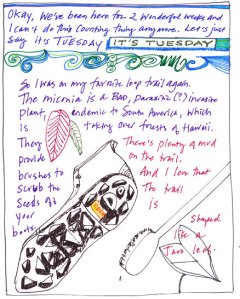 Okay, we've been here for 2 wonderful weeks and
I can't do this counting thing anymore. Let's just
say it's TUESDAY IT'S TUESDAY
So I was on my favorite loop trail again.
The miconia is a BAD, parasitic (?) invasive
plant, endemic to South America, which
is taking over forests of Hawaii.
They
provide
brushes to
scrub the
seeds off
your
boots.
There's plenty of mud
on the trail.
And I love that
The trail
is
shaped
like a
Taro leaf.